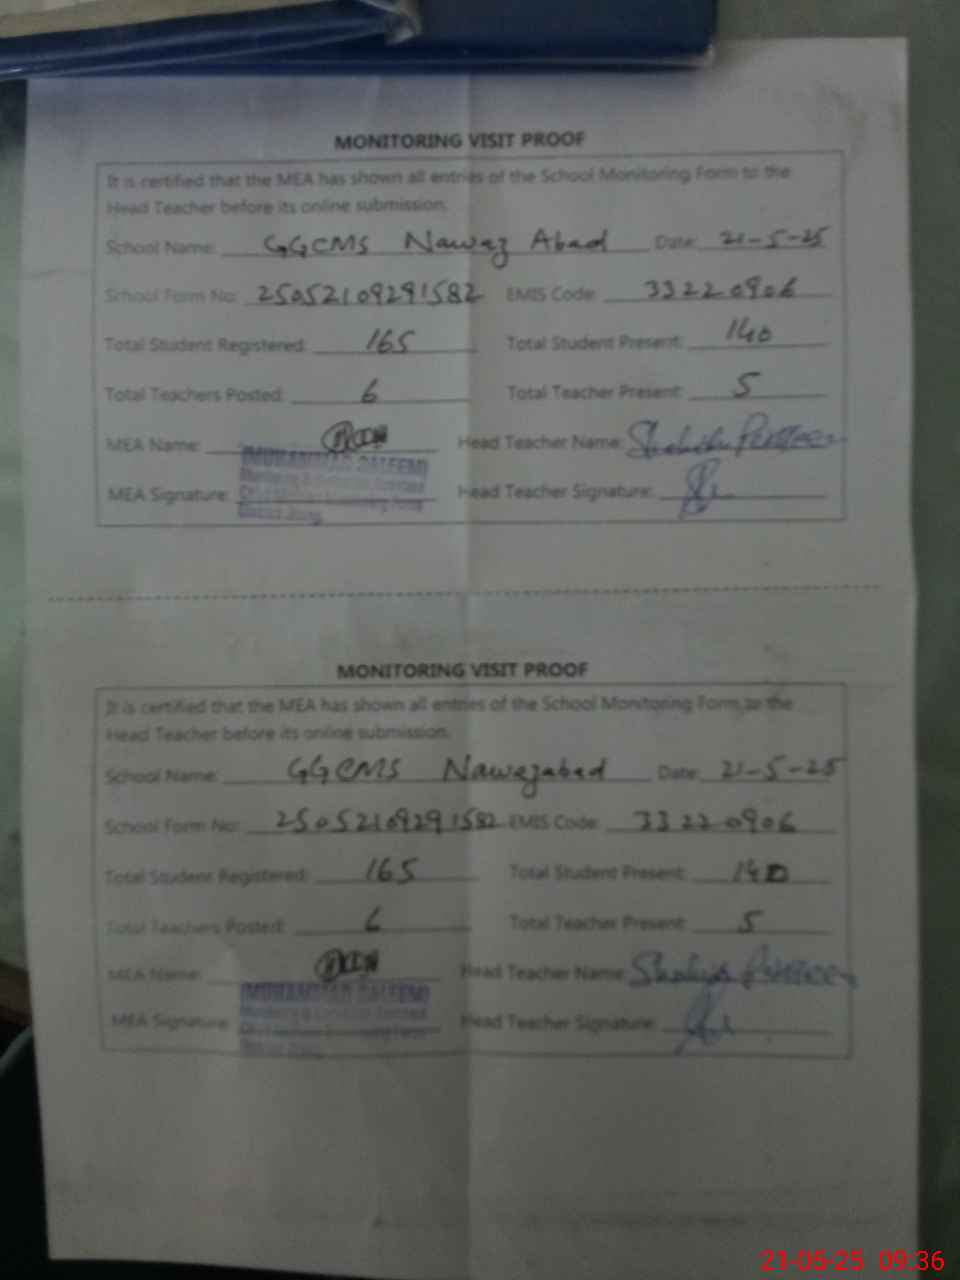 MONITORING VISIT PROOF
It is certified that the MEA has shown all entries of the School Monitoring Form to the
Head Teacher before its online submission.
School Name: GGCMS Nawaz Abad Date: 21-5-25
School Form No: 25052109291582 EMIS Code: 33220906
Total Student Registered: 165 Total Student Present: 140
Total Teachers Posted: 6 Total Teacher Present: 5
MEA Name: Head Teacher Name:
(MUHAMMAD SALEEM)
MEA Signature: Head Teacher Signature:
District Jhang
MONITORING VISIT PROOF
It is certified that the MEA has shown all entries of the School Monitoring Form to the
Head Teacher before its online submission.
School Name: GGCMS Nawazabad Date: 21-5-25
School Form No: 25052109291582 EMIS Code: 33220906
Total Student Registered: 165 Total Student Present: 140
Total Teachers Posted: 6 Total Teacher Present: 5
MEA Name: Head Teacher Name:
(MUHAMMAD SALEEM)
MEA Signature: Head Teacher Signature:
21-05-25 09:36